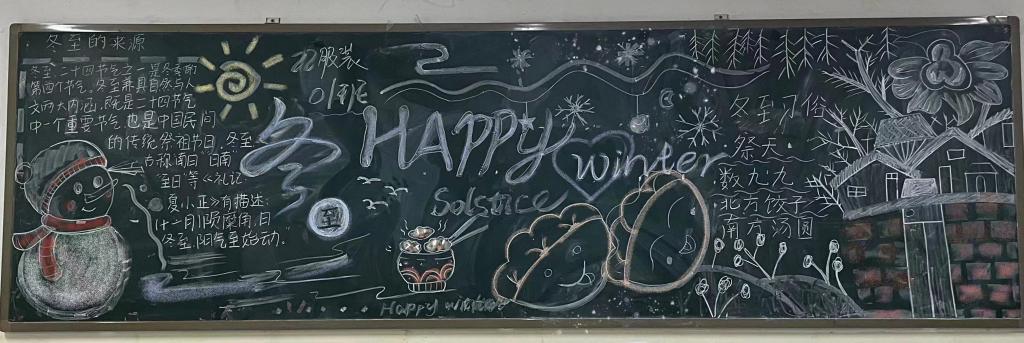 冬至的来源
冬至二十四节气之一是冬季的
第四个节气。冬至兼具自然与人
文两大内涵，既是二十四节气
中一个重要节气也是中国民间
的传统祭祖节日。冬至
古称"南日""日南
至日"等《礼记
夏小正》有描述:
"十一月陨麋角,日
冬至,阳气至始动。"
服装
01班
冬
至
HAPPY
winter
Solstice
Happy winter
冬至习俗
祭天
数九九
北方饺子
南方汤圆